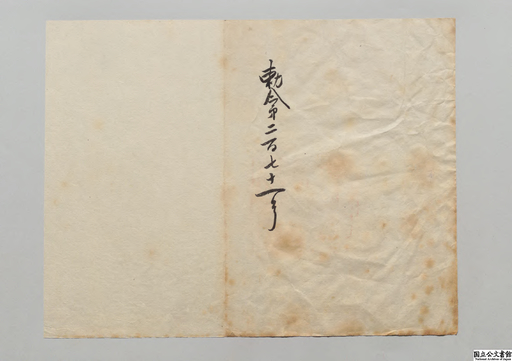 勅令第二百七十一号
国立公文書館
National Archives of Japan